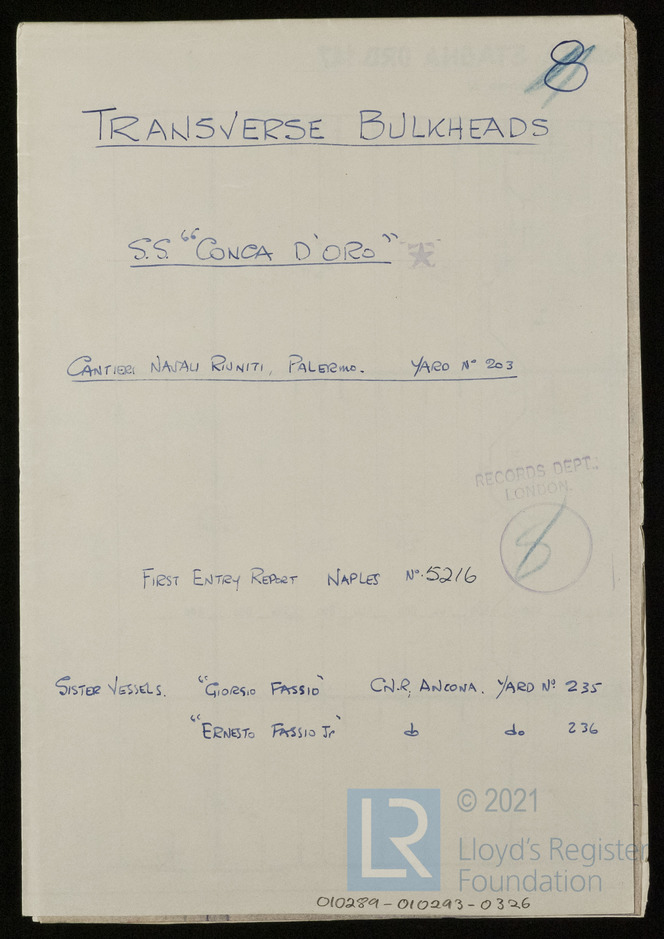 8
TRANSVERSE BULKHEADS
S.S. "CONCA D'ORO"
CANTIERI NAVALI RIUNITI, PALERMO. YARD Nº 203
RECORDS DEPT.,
LONDON.
8
FIRST ENTRY REPORT NAPLES Nº. 5216
SISTER VESSELS. "GIORGIO FASSIO" C.N.R, ANCONA. YARD Nº 235
"ERNESTO FASSIO Jr" do do 236
LR
© 2021
Lloyd's Register
Foundation
010289-010293-0326